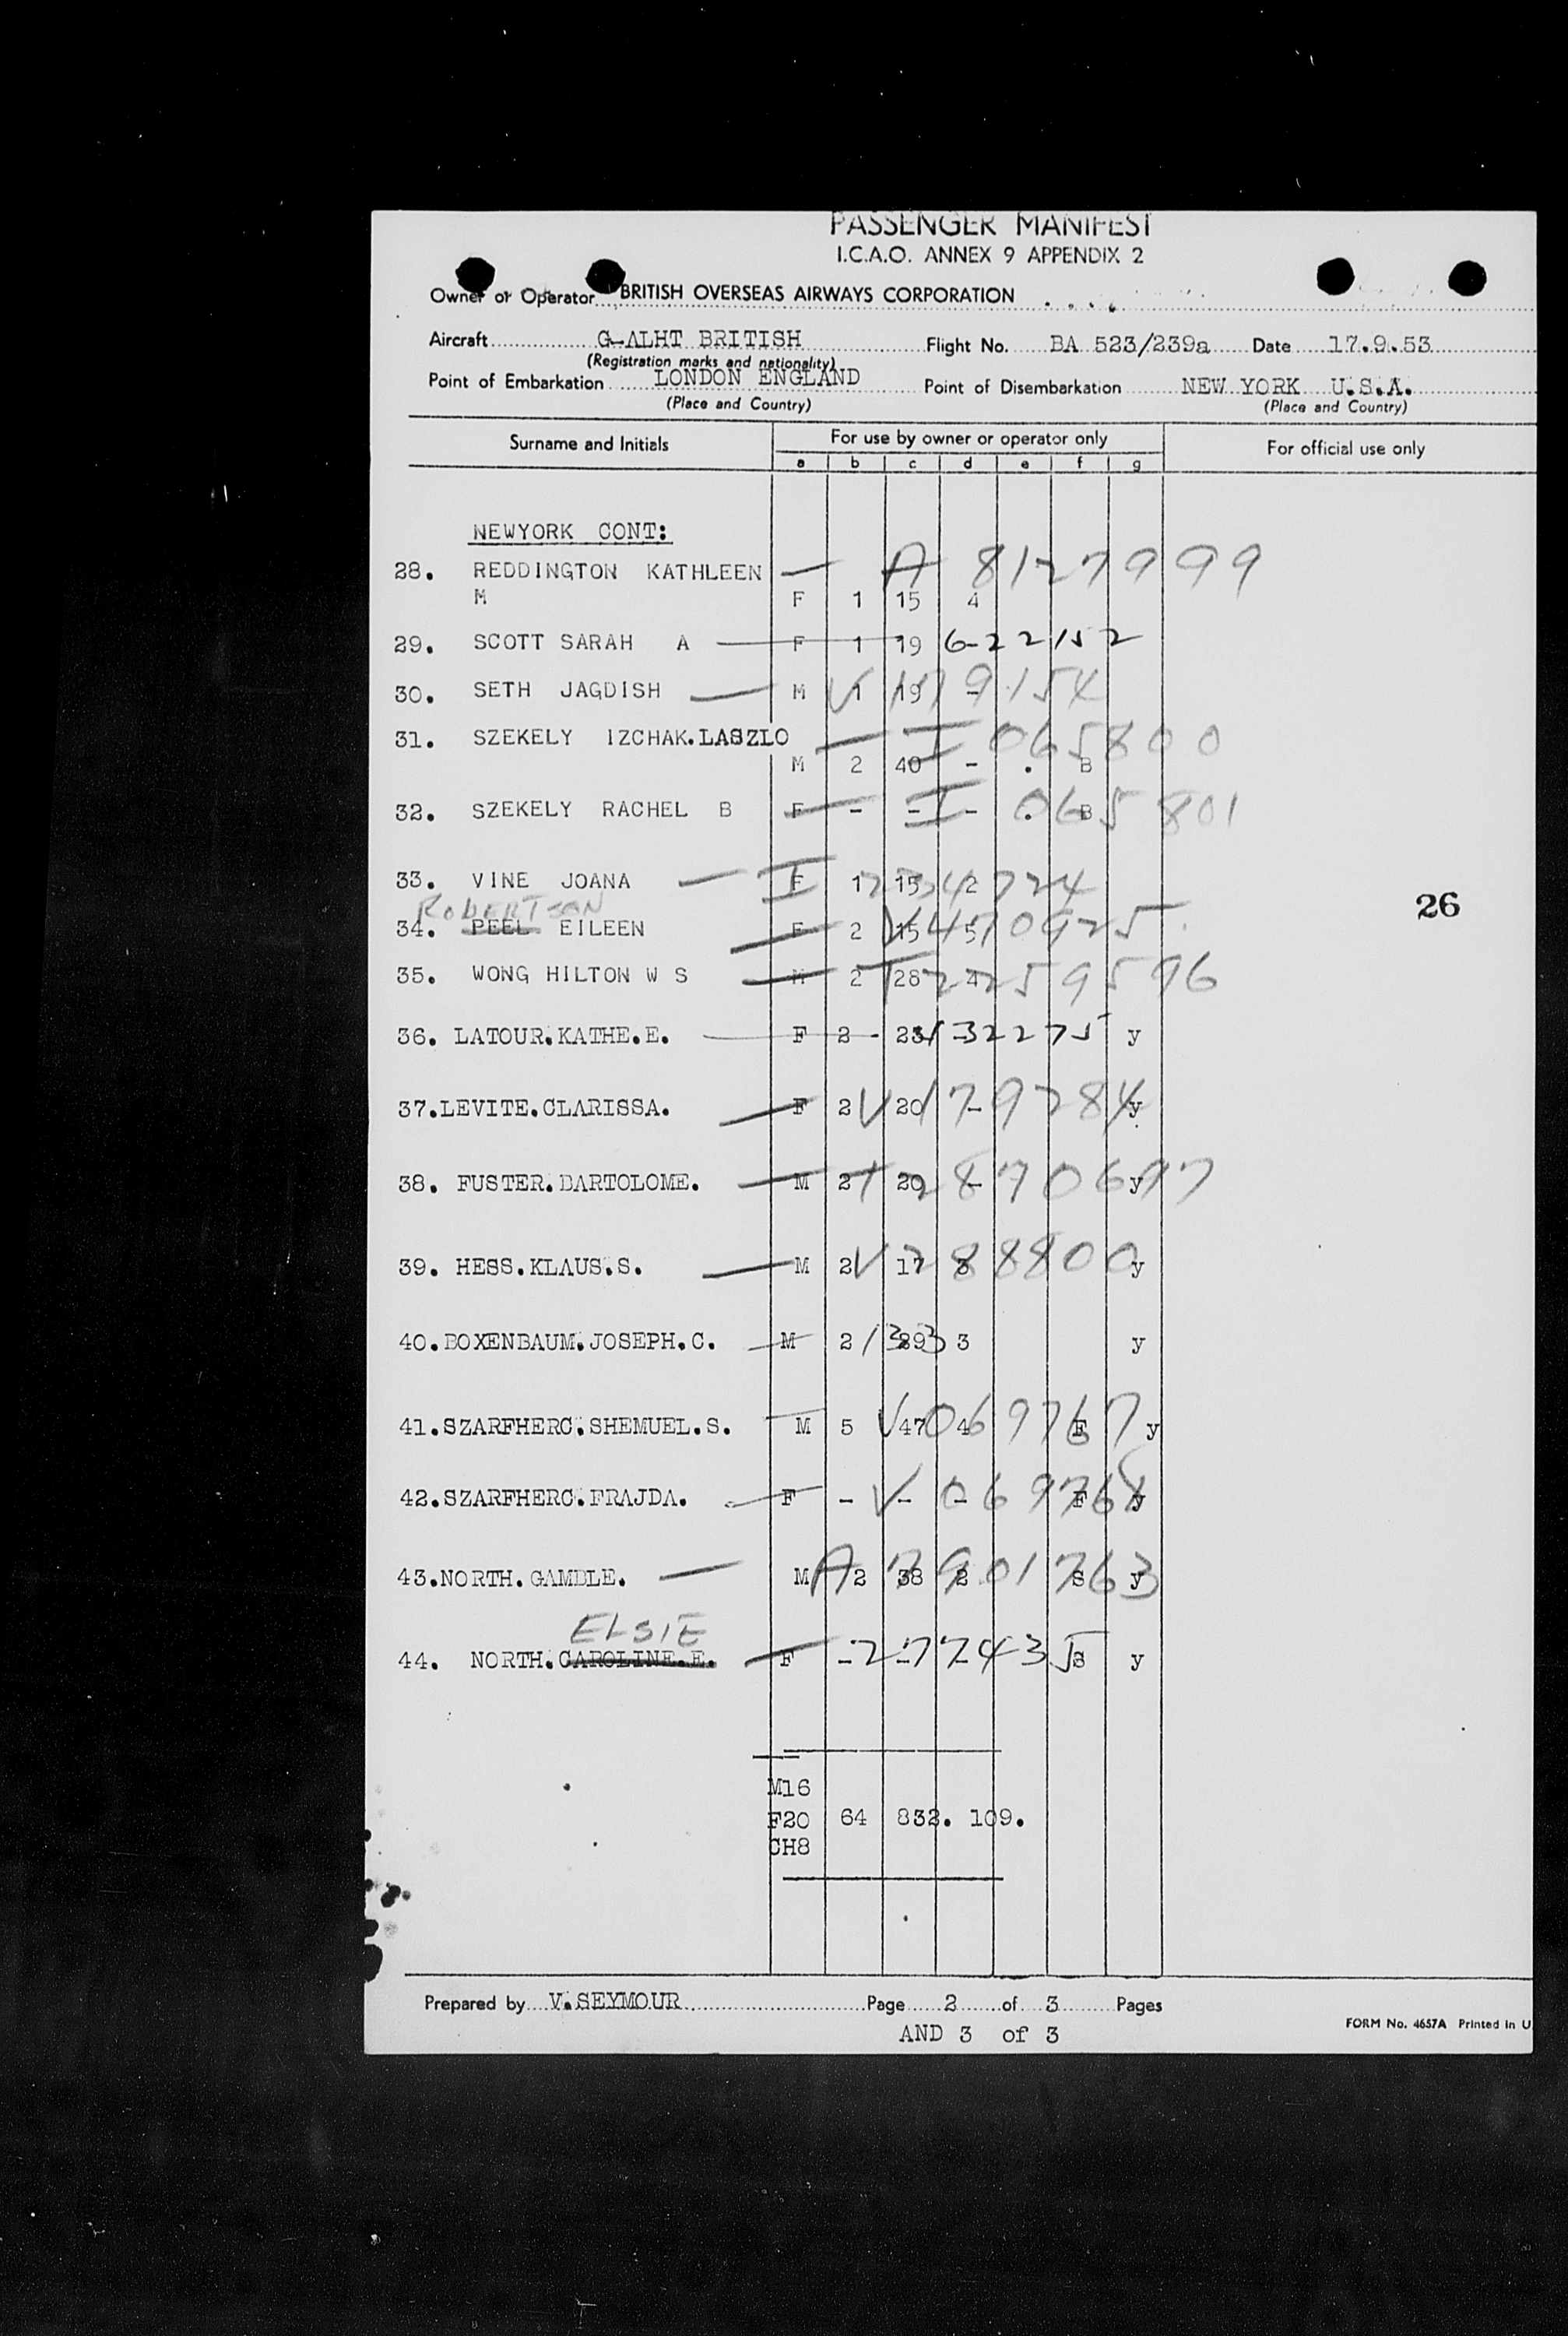 PASSENGER MANIFEST
I.C.A.O. ANNEX 9 APPENDIX 2
Owner or Operator BRITISH OVERSEAS AIRWAYS CORPORATION
Aircraft G-ALHT BRITISH Flight No. BA 523/239a Date 17.9.53
(Registration marks and nationality)
Point of Embarkation LONDON ENGLAND Point of Disembarkation NEW YORK U.S.A.
(Place and Country) (Place and Country)
Surname and Initials For use by owner or operator only For official use only
a b c d e f g
NEWYORK CONT:
28. REDDINGTON KATHLEEN — A 8127999
M F 1 15 4
29. SCOTT SARAH A F 1 19 6-22152
30. SETH JAGDISH M V 1 19 - 9154
31. SZEKELY IZCHAK.LASZLO I 065800
M 2 40 - . B
32. SZEKELY RACHEL B F - - - . B I 065801
33. VINE JOANA F 1 15 2
ROBERTSON
34. PEEL EILEEN F 2 15 5 V4510925
26
35. WONG HILTON W S M 2 28 4 259596
36. LATOUR.KATHE.E. F 2 - 32275 y
37.LEVITE.CLARISSA. F 2 20 - y V179784
38. FUSTER.BARTOLOME. M 2 20 - y
39. HESS.KLAUS.S. M 2 17 y V288800
40.BOXENBAUM.JOSEPH.C. M 2 3 y
41.SZARFHERC.SHEMUEL.S. M 5 47 4 F y V069767
42.SZARFHERC.FRAJDA. F - - - F y V069768
43.NORTH.GAMBLE. M 2 38 2 S y A7901763
ELSIE
44. NORTH.CAROLINE.E. F - - - S y 277435
M16
F20 64 832. 109.
CH8
Prepared by V.SEYMOUR Page 2 of 3 Pages
AND 3 of 3
FORM No. 4657A Printed in U